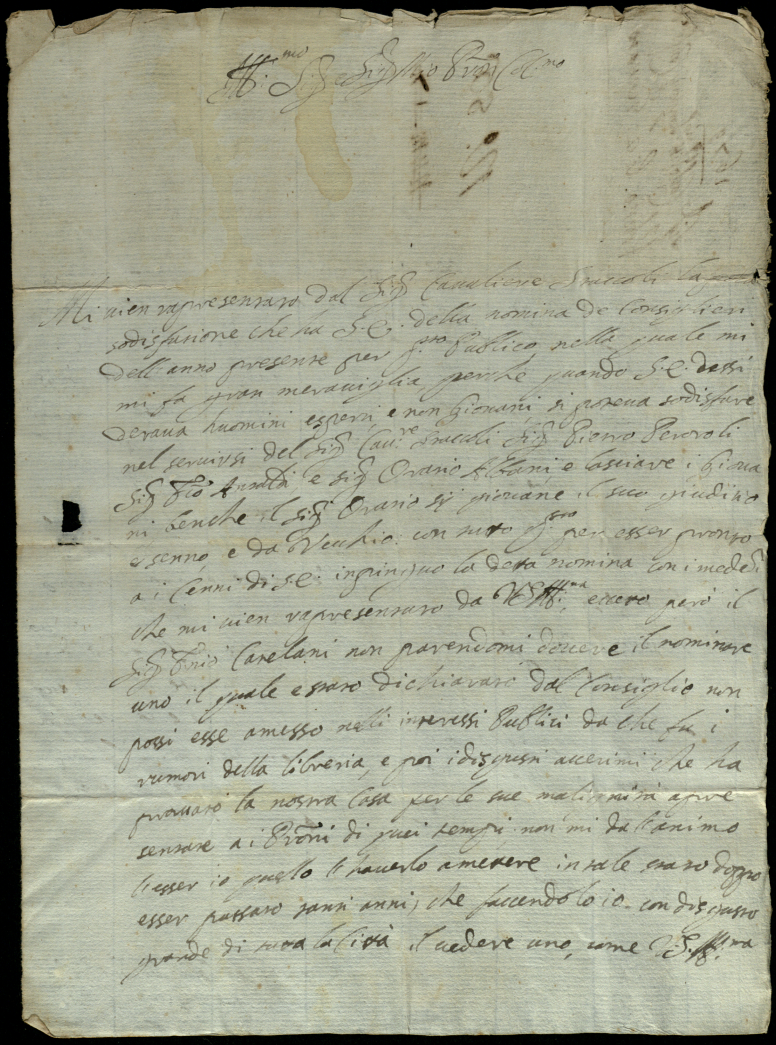 Ill.mo Sig.r e Sig.r Mio Pron Col.mo
Mi vien rapresentato dal Sig.r Cavaliere Staccoli la
sodisfatione che ha S.E. della nomina de Consiglieri
dell'anno presente per q.sto Publico nella quale mi
mi fa gran meraviglia, perche quando S.E. dessi
derava huomini esperti, e non giovani, si poteva sodisfare
nel servirsi del Sig.r Cav.re Staccoli Sig.r Pietro Peroli
Sig.r Gio e sig.r Oratio Albani, e lasciare i giova
ni benche il sig.r Oratio sij giovane il suo giuditio
e senno, e da Vecchio: con tutto q.sto per esser pronto
a i Cenni di S.E. la detta nomina con i medemi
che mi vien rapresentato da V.S. Ill.ma, eccetto però il
Sig.r Catelani non parendomi dovere il nominare
uno il quale e stato dichiarato dal Consiglio non
possi esse amesso nelli interessi Publici da che fu i
rumori della libreria, e poi i disgusti accerimi che ha
provato la nostra Casa per le sue malignità apre
sentate a i Proni di quei tempi non mi da l'animo
d'esser io quello d'haverlo a metere in tale stato doppo
esser passato tanti anni, che facendolo io con disgusto
grande di tutta la Città il vedere uno, come V.S. Ill.ma